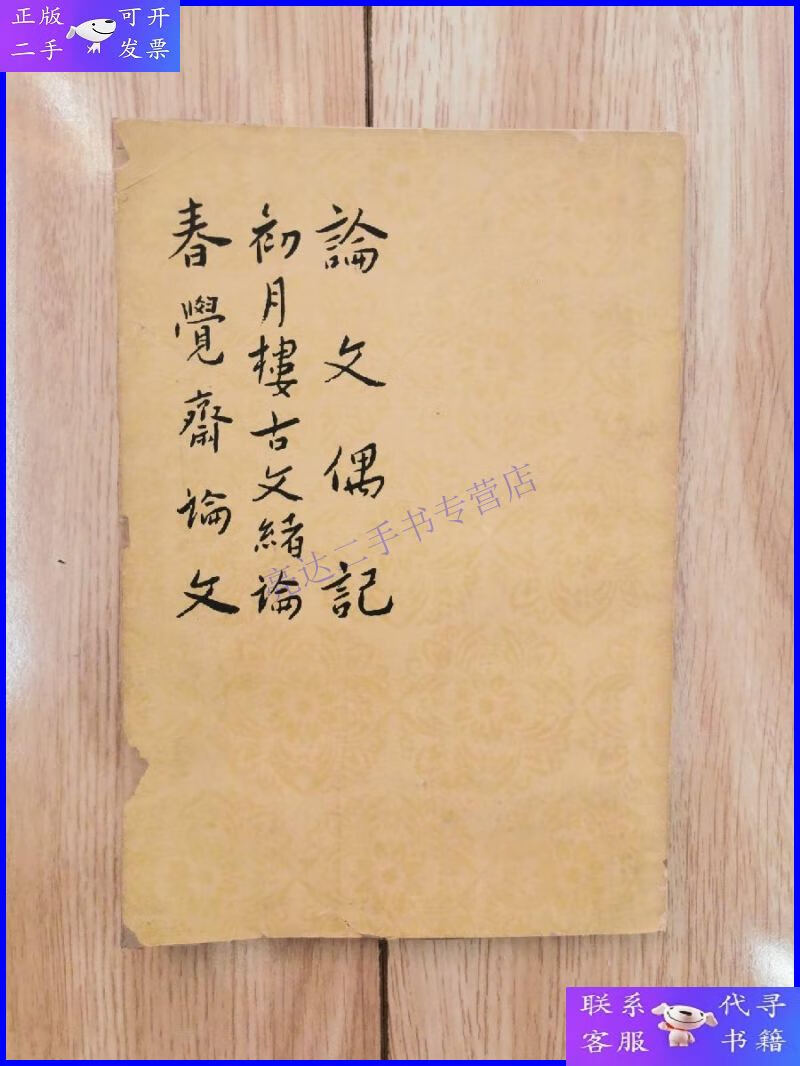 正版 可开
二手 发票
論文偶記
初月樓古文緒論
春覺齋論文
亮达二手书专营店
联系 代寻
客服 书籍